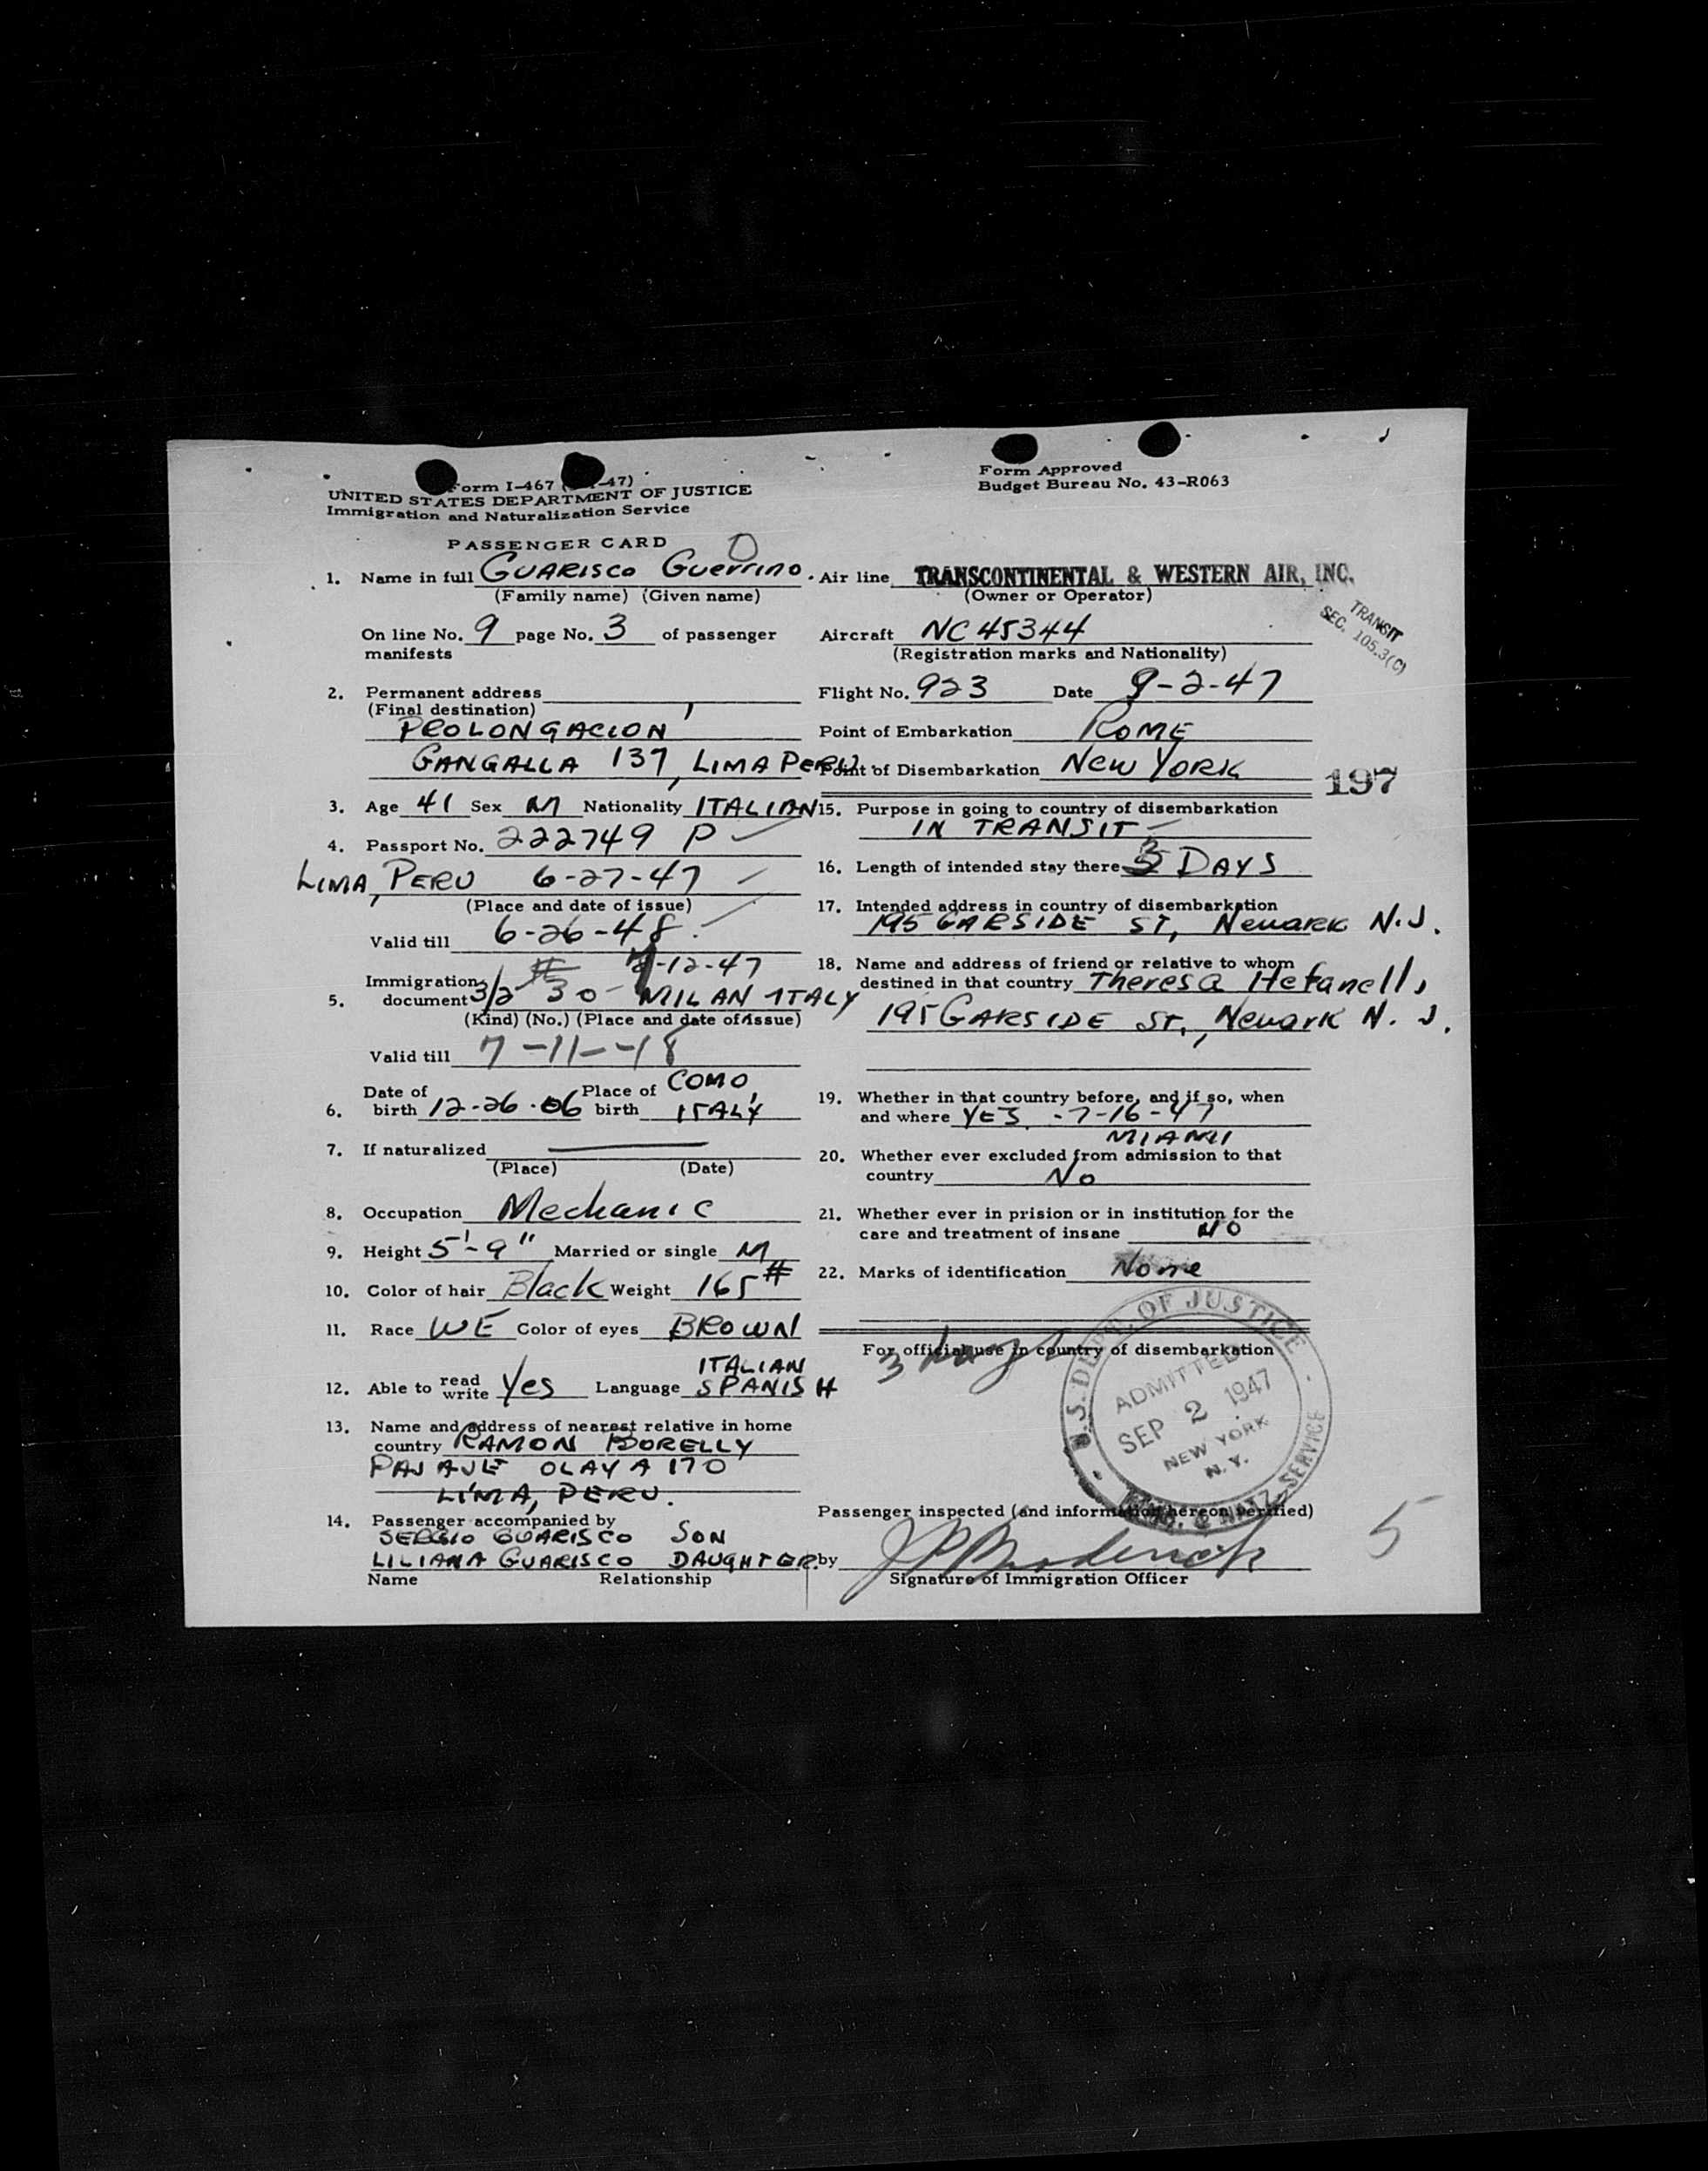 Form I-467 ( -47)
UNITED STATES DEPARTMENT OF JUSTICE
Immigration and Naturalization Service
Form Approved
Budget Bureau No. 43-R063
PASSENGER CARD
1. Name in full GUARISCO Guerrino.
(Family name) (Given name)
On line No. 9 page No. 3 of passenger
manifests
2. Permanent address
(Final destination)
PROLONGACION
GANGALLA 137, LIMA PERU.
3. Age 41 Sex M Nationality ITALIAN
4. Passport No. 222749 P
LIMA, PERU 6-27-47
(Place and date of issue)
Valid till 6-26-48.
7-12-47
5. Immigration document 3/2 30 - MILAN ITALY
(Kind) (No.) (Place and date of issue)
Valid till 7-11-48
6. Date of birth 12-26-06 Place of birth COMO, ITALY
7. If naturalized
(Place) (Date)
8. Occupation Mechanic
9. Height 5'-9" Married or single M
10. Color of hair Black Weight 165#
11. Race WE Color of eyes BROWN
12. Able to read write Yes Language ITALIAN SPANISH
13. Name and address of nearest relative in home
country RAMON BORELLY
OLAYA 170
LIMA, PERU.
14. Passenger accompanied by
SERGIO GUARISCO SON
LILIANA GUARISCO DAUGHTER.
Name Relationship
Air line TRANSCONTINENTAL & WESTERN AIR, INC.
(Owner or Operator)
TRANSIT
SEC. 105.3(C)
Aircraft NC 45344
(Registration marks and Nationality)
Flight No. 923 Date 9-2-47
Point of Embarkation ROME
Point of Disembarkation NEW YORK
197
15. Purpose in going to country of disembarkation
IN TRANSIT
16. Length of intended stay there 3 DAYS
17. Intended address in country of disembarkation
195 GARSIDE ST, Newark N.J.
18. Name and address of friend or relative to whom
destined in that country Theresa
195 GARSIDE ST., Newark N. J.
19. Whether in that country before, and if so, when
and where YES. - 7-16-47
MIAMI
20. Whether ever excluded from admission to that
country No
21. Whether ever in prision or in institution for the
care and treatment of insane NO
22. Marks of identification None
For official use in country of disembarkation
3 days
U.S. DEPT. OF JUSTICE
ADMITTED
SEP 2 1947
NEW YORK
N. Y.
IMMG. & NATZ. SERVICE
Passenger inspected (and information hereon verified)
by
Signature of Immigration Officer
5